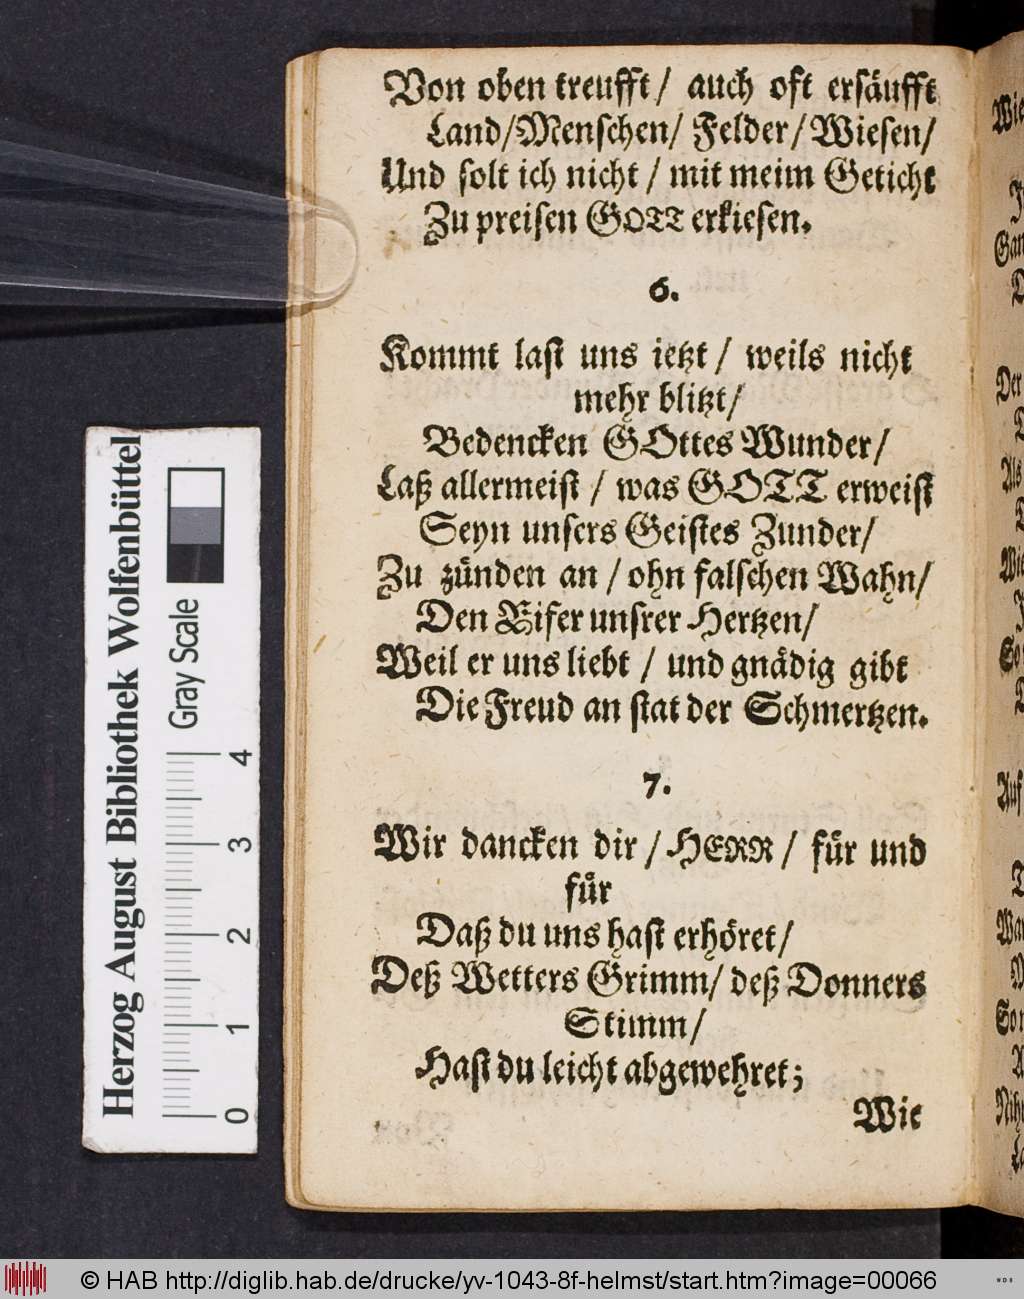 Von oben treufft / auch oft ersäufft
Land/Menschen/ Felder/Wiesen/
Und solt ich nicht / mit meim Geticht
Zu preisen GOTT erkiesen.
6.
Kommt last uns ietzt / weils nicht
mehr blitzt/
Bedencken GOttes Wunder/
Laß allermeist / was GOTT erweist
Seyn unsers Geistes Zunder/
Zu zünden an / ohn falschen Wahn/
Den Eifer unsrer Hertzen/
Weil er uns liebt / und gnädig gibt
Die Freud an stat der Schmertzen.
7.
Wir dancken dir / HERR / für und
für
Daß du uns hast erhöret/
Deß Wetters Grimm/ deß Donners
Stimm/
Hast du leicht abgewehret;
Wie
Herzog August Bibliothek Wolfenbüttel
Gray Scale
0 1 2 3 4
© HAB http://diglib.hab.de/drucke/yv-1043-8f-helmst/start.htm?image=00066